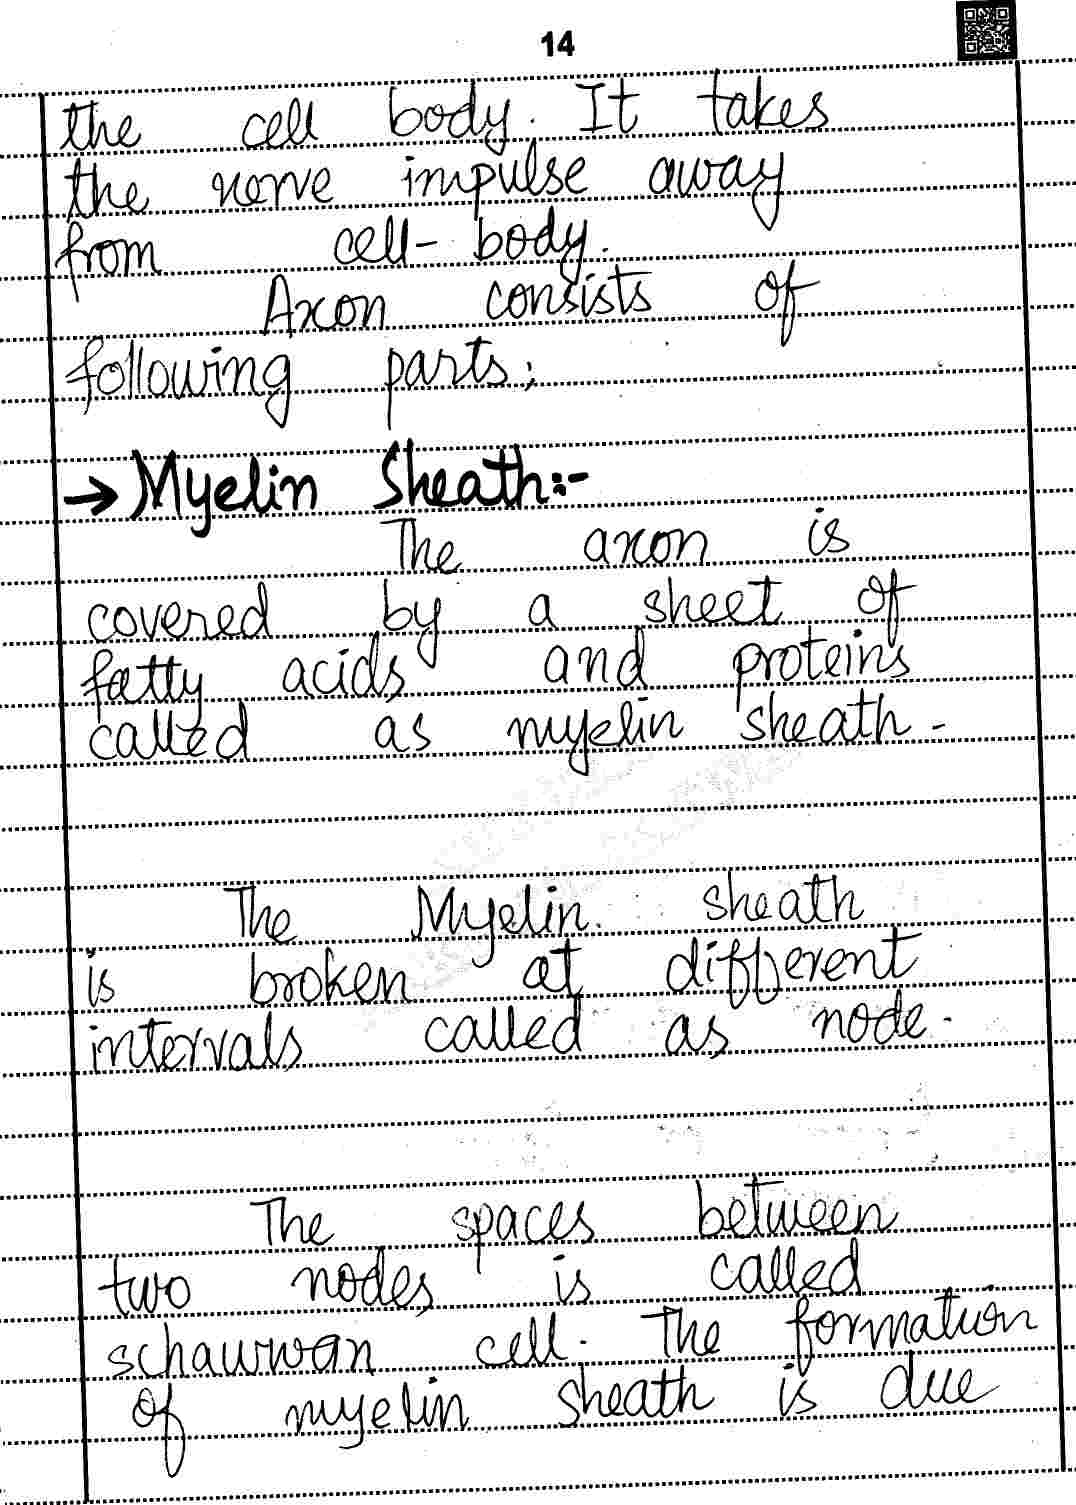 14
the cell body. It takes
the nerve impulse away
from cell-body.
Axon consists of
following parts;
→ Myelin Sheath:-
The axon is
covered by a sheet of
fatty acids and proteins
called as myelin sheath-
The Myelin. sheath
is broken at different
intervals called as node.
The spaces between
two nodes is called
schauwan cell. The formation
of myelin sheath is due